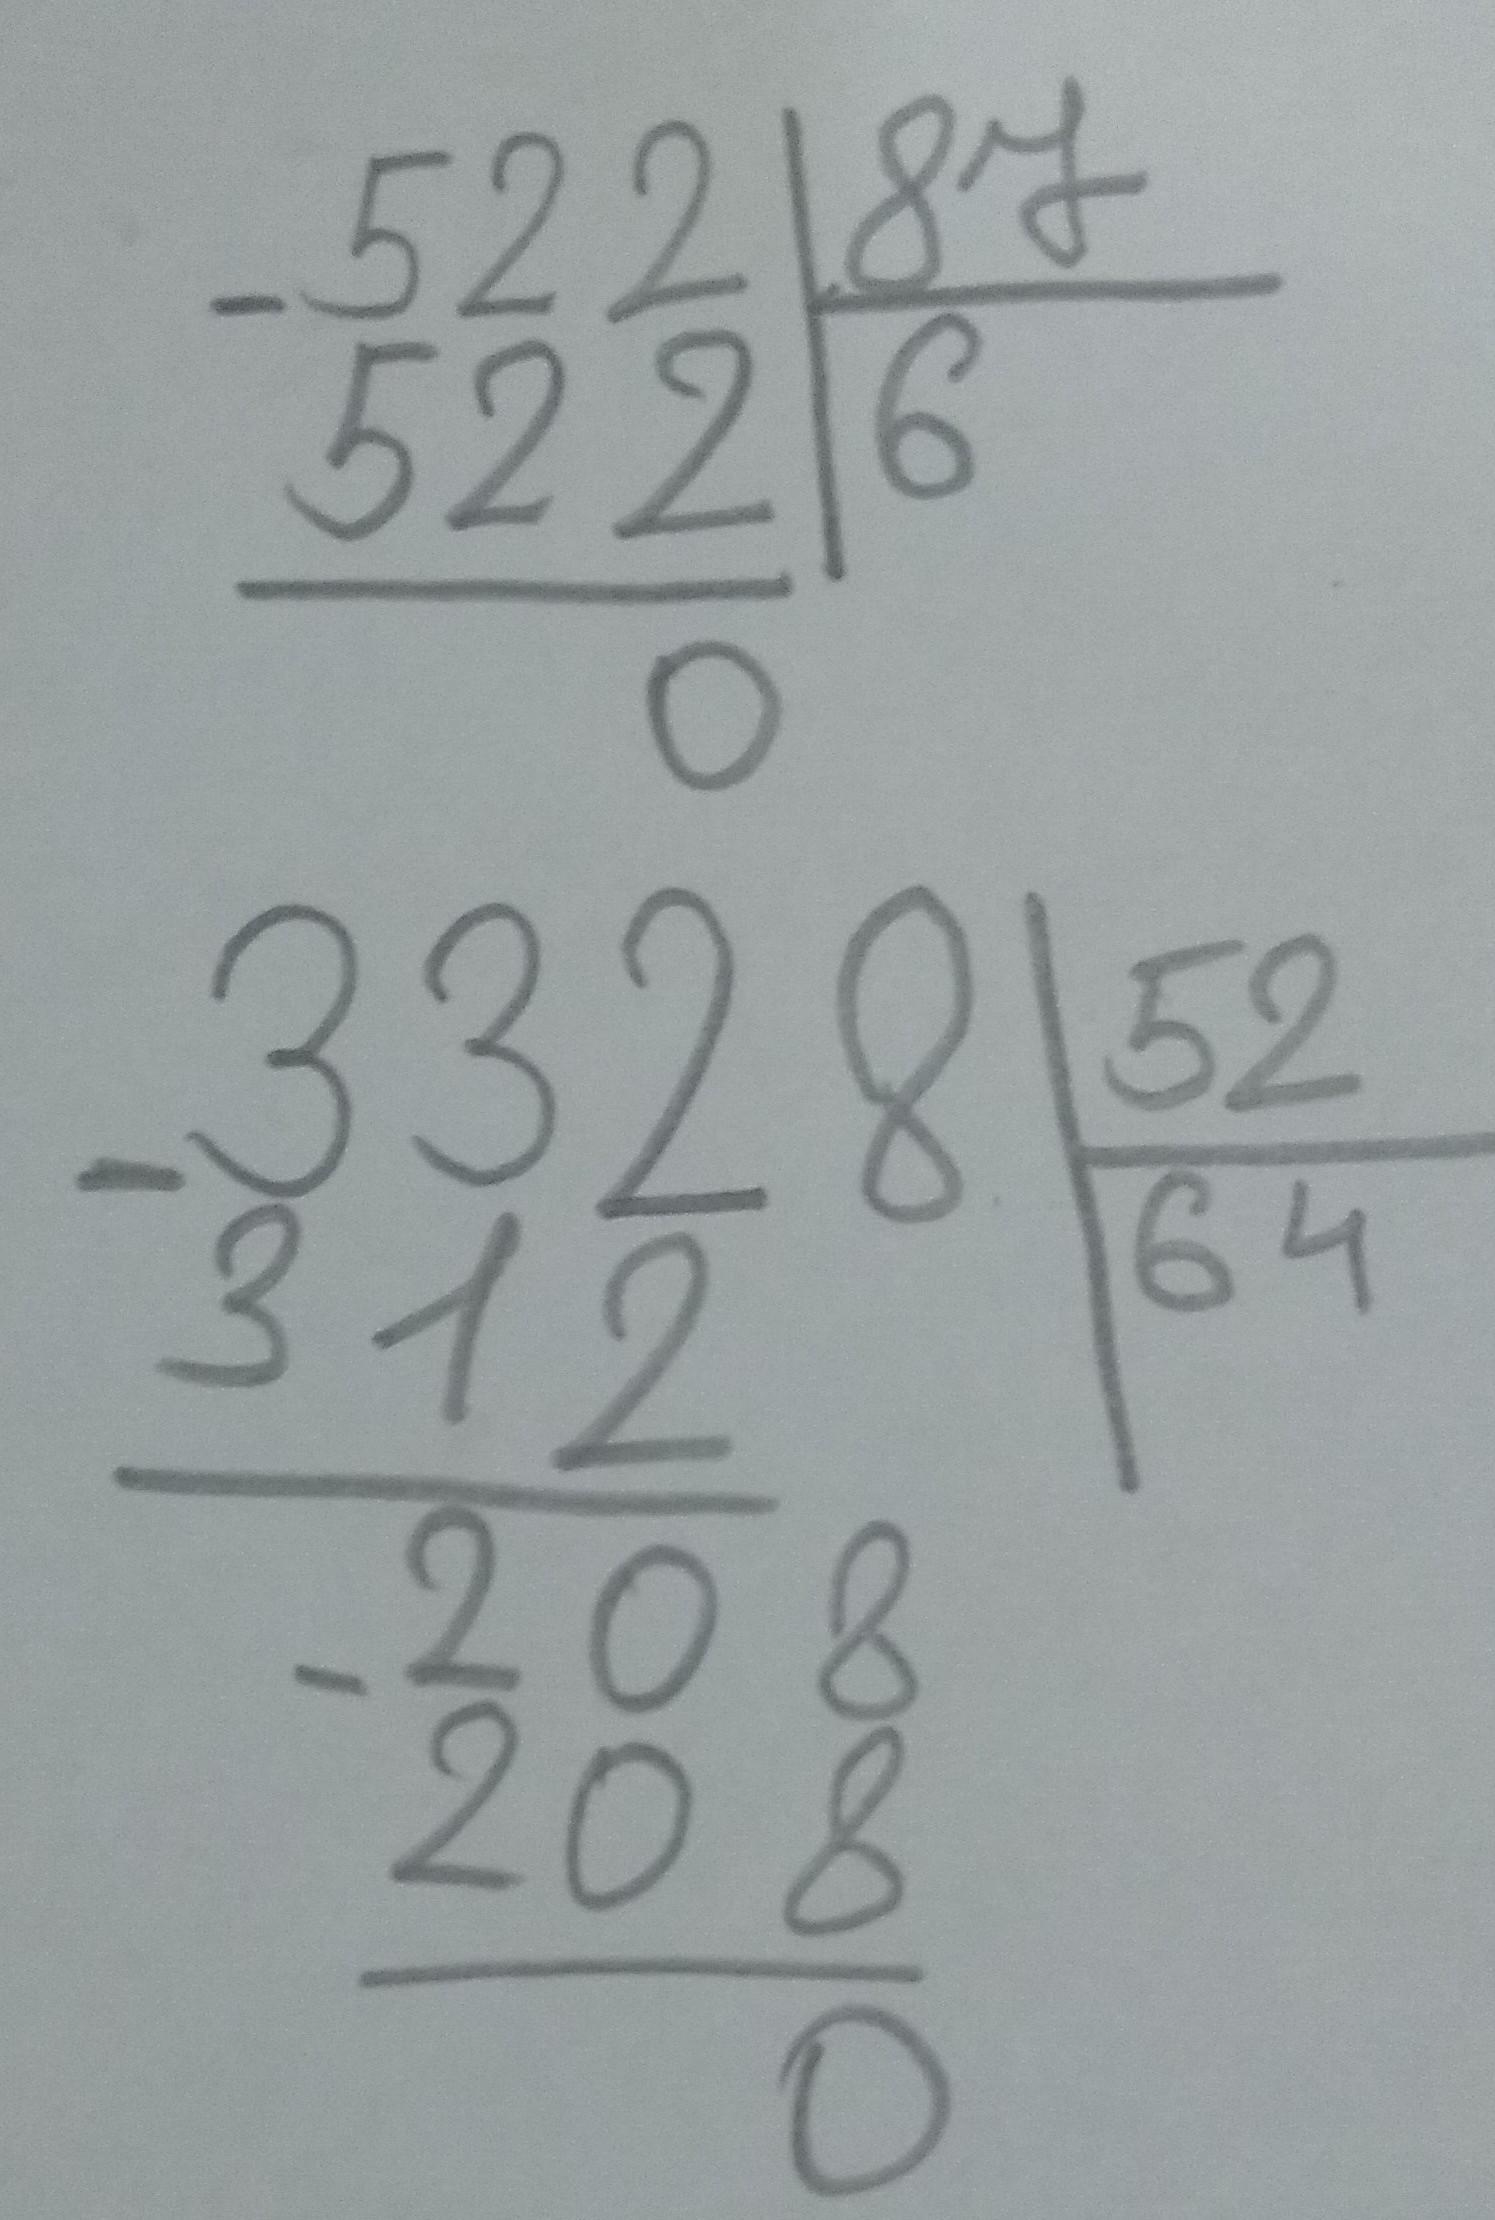 -522 87
522 6
0
-3328 52
312 64
-208
208
0